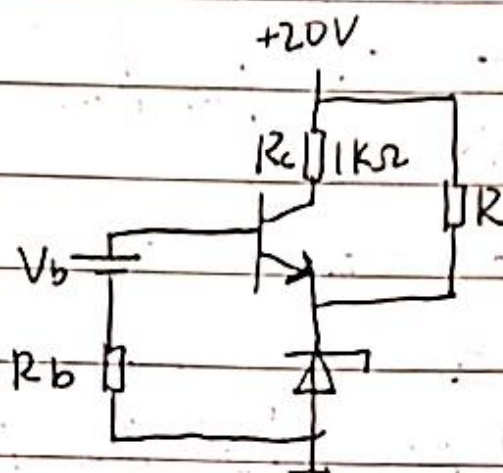 +20V.
Rc 1KΩ
R
Vb
Rb